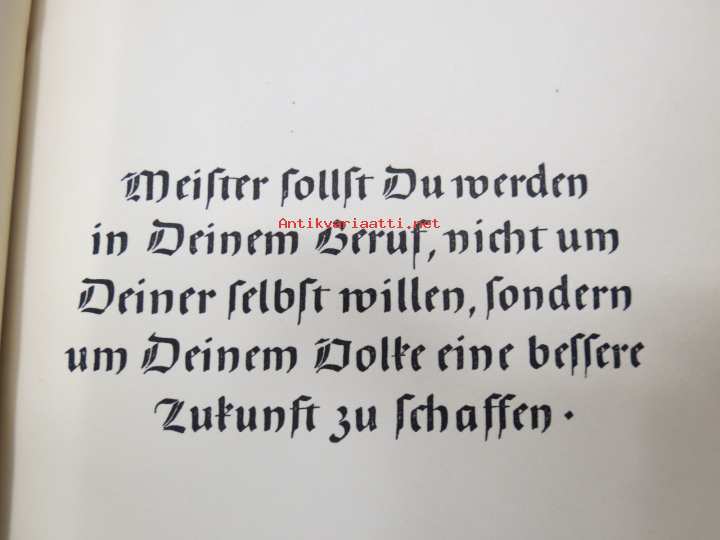 Meister sollst Du werden
Antikvariaatti.net
in Deinem Beruf, nicht um
Deiner selbst willen, sondern
um Deinem Volke eine bessere
Zukunft zu schaffen.